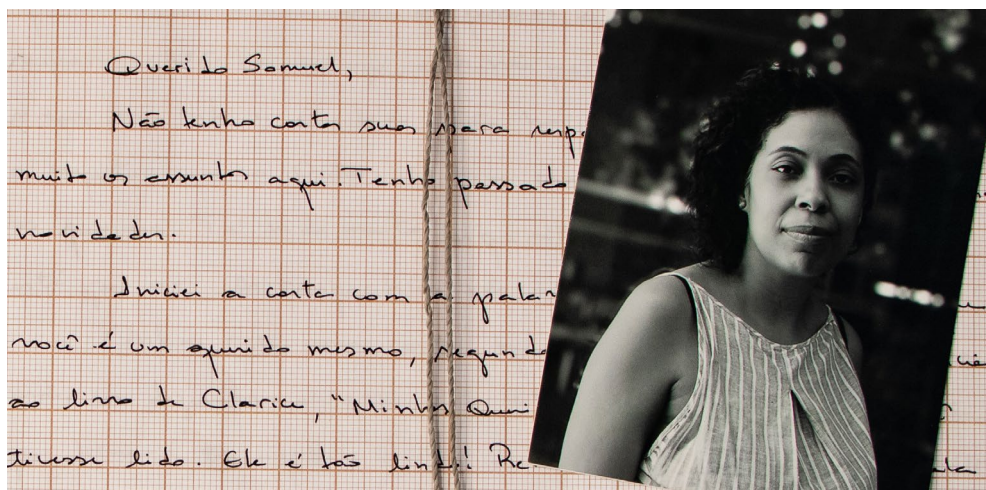 Querido Samuel,
Não tenho carta sua para resp
muito os assuntos aqui. Tenho passado
novidades.
Iniciei a carta com a pala
você é um querido mesmo, segundo
ao livro de Clarice, "Minhas Queri
tivesse lido. Ele é tão lindo! Re